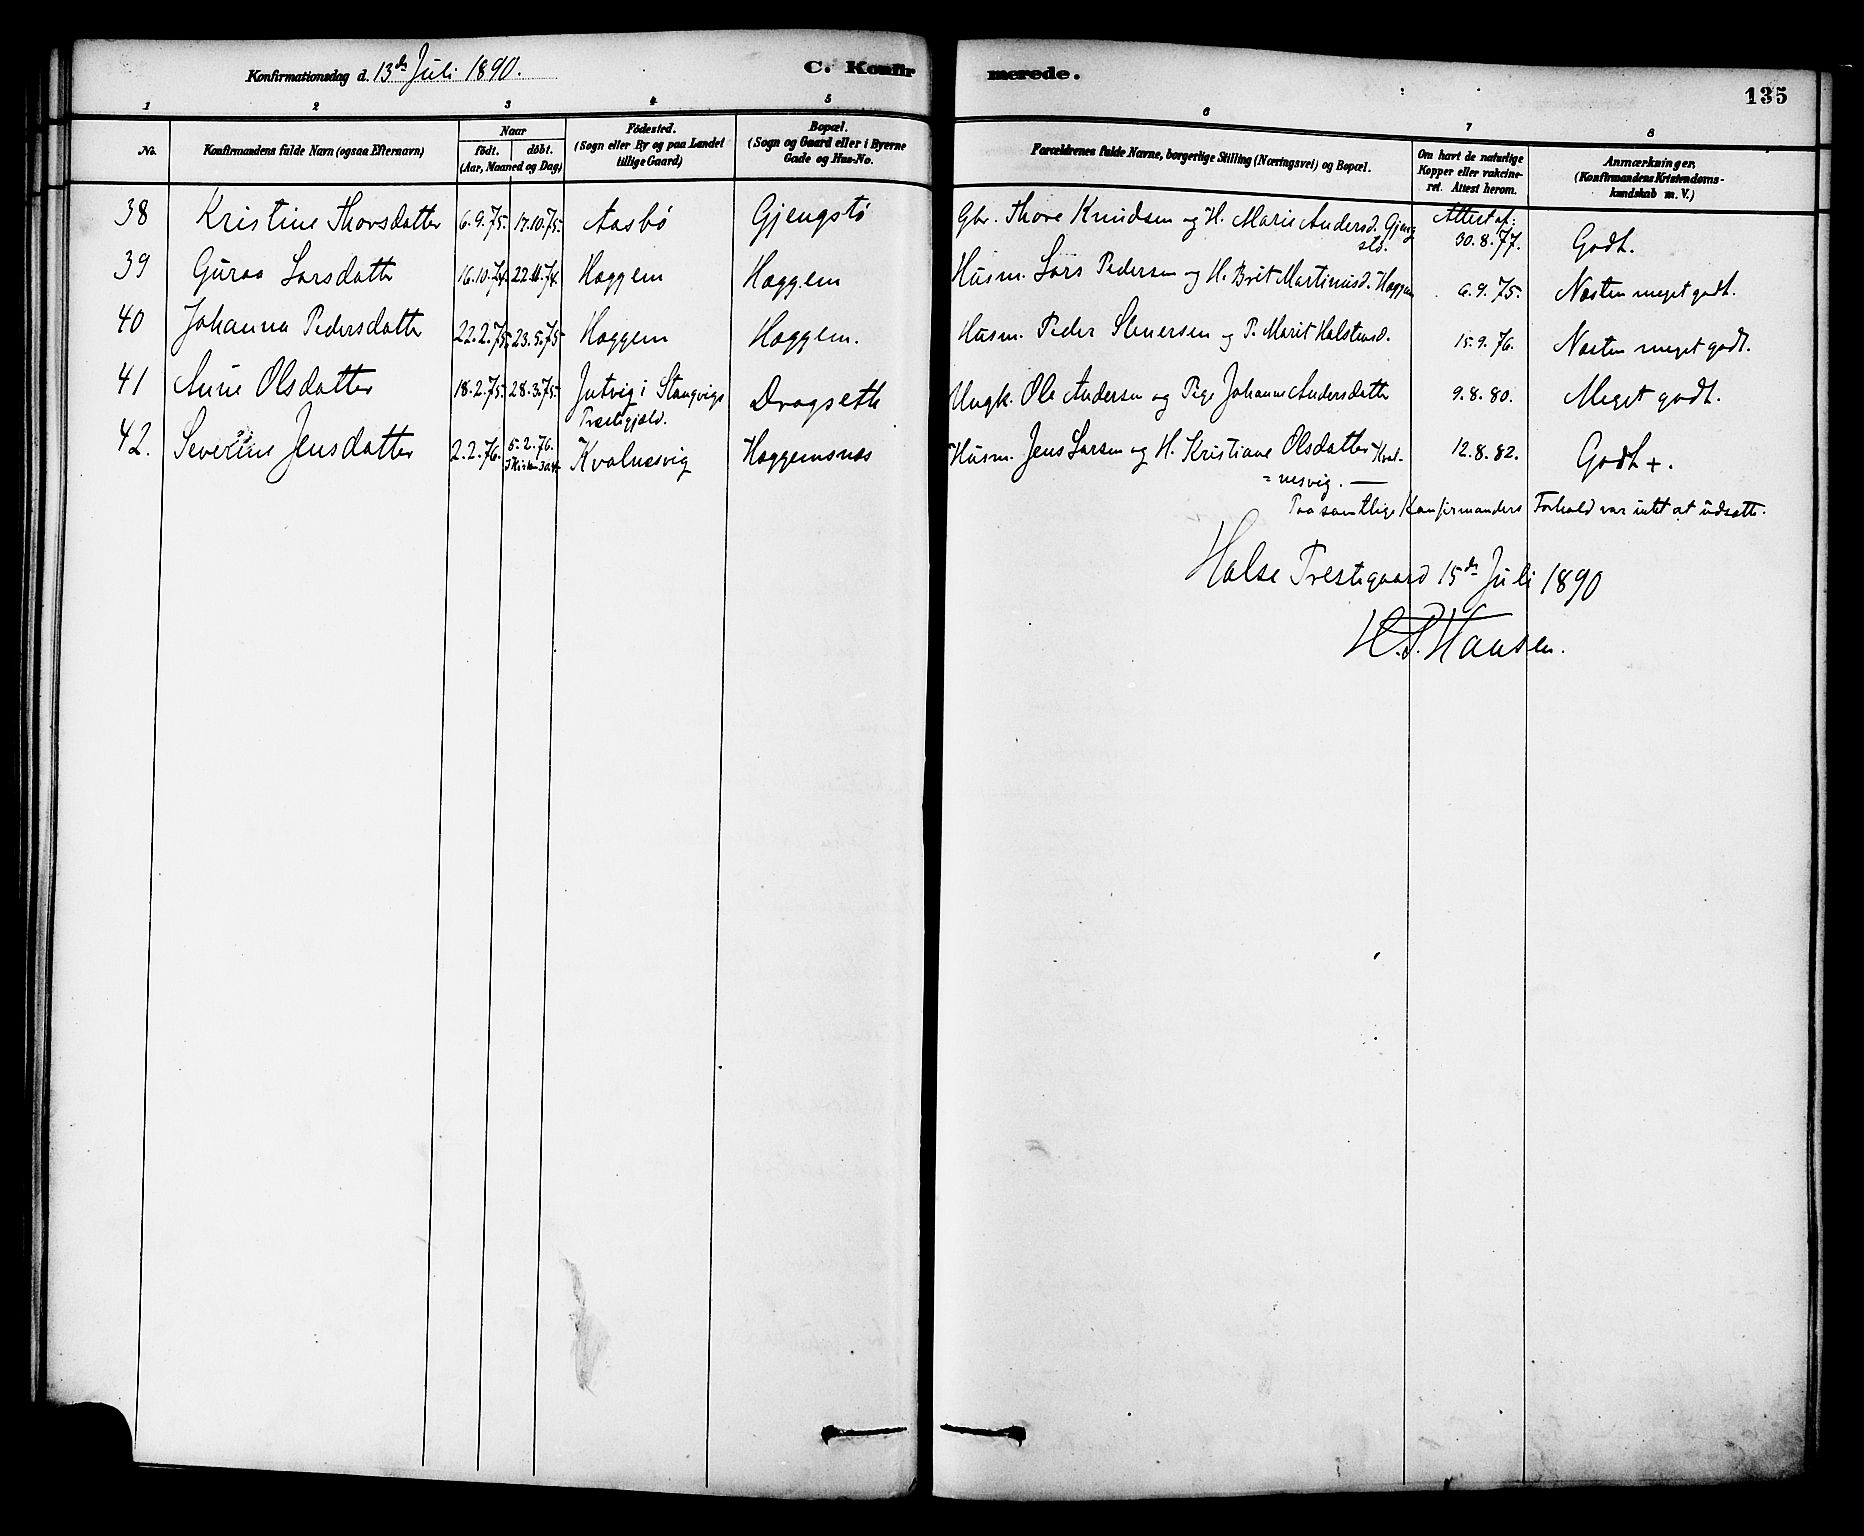 Konfirmationsdag d. 13de Juli 1890.
C. Konfirmerede.
135
1 2 3 4 5 6 7 8
No.
Konfirmandens fulde Navn (ogsaa Efternavn)
Naar
födt. döbt.
(Aar, Maaned og Dag)
Födested.
(Sogn eller By og paa Landet
tillige Gaard)
Bopæl.
(Sogn og Gaard eller i Byerne
Gade og Hus-No.
Forældrenes fulde Navne, borgerlige Stilling (Næringsvei) og Bopæl.
Om havt de naturlige
Kopper eller vakcine-
ret. Attest herom.
Anmærkninger.
(Konfirmandens Kristendoms-
kundskab m. V.)
38 Kristine Thorsdatter 6.9.75. 17.10.75. Aasbö Gjengstö Gbr. Thore Knudsen og H. Marie Andersd. Gjeng
stö. Attest af: 30.8.77. Godt.
39 Guraa Larsdatter 16.10.74. 22.11.74. Haggem Haggem Husm. Lars Pedersen og H. Brit Martinusd. Haggem 6.9.75. Næsten meget godt.
40 Johanna Pedersdatter 22.2.75. 23.5.75 Haggem Haggem. Husm. Peder Stenersen og P. Marit Halstensd. 15.9.76. Næsten meget godt.
41 Anne Olsdatter 18.2.75. 28.3.75. Jutvig i Stangvigs
Præstegjæld. Dragseth Ungk. Ole Andersen og Pige Johanne Andersdatter 9.8.80. Meget godt.
42. Severine Jensdatter 2.2.76. 5.2.76. Kvalnesvig Haggemsnæs Husm. Jens Larsen og H. Kristiane Olsdatter Kval-
=nesvig. — 12.8.82. Godt +.
Paa samtlige Konfirmanders Forhold var intet at udsætte.
Halse Prestegaard 15de Juli 1890
H.P. Hansen.